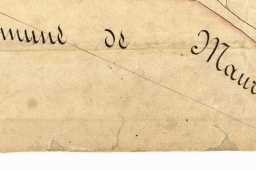 mune de Maur